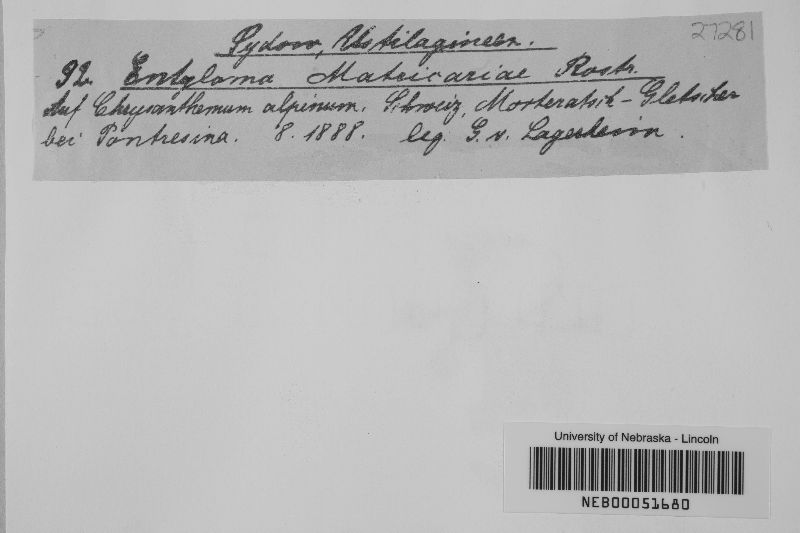 27281
Sydow, Ustilagineen.
92. Entyloma Matricariae Rostr.
Auf Chrysanthemum alpinum. Schweiz, Morteratsch-Gletscher
bei Pontresina. 8. 1888. leg. G. v. Lagerheim.
University of Nebraska - Lincoln
NEB00051680